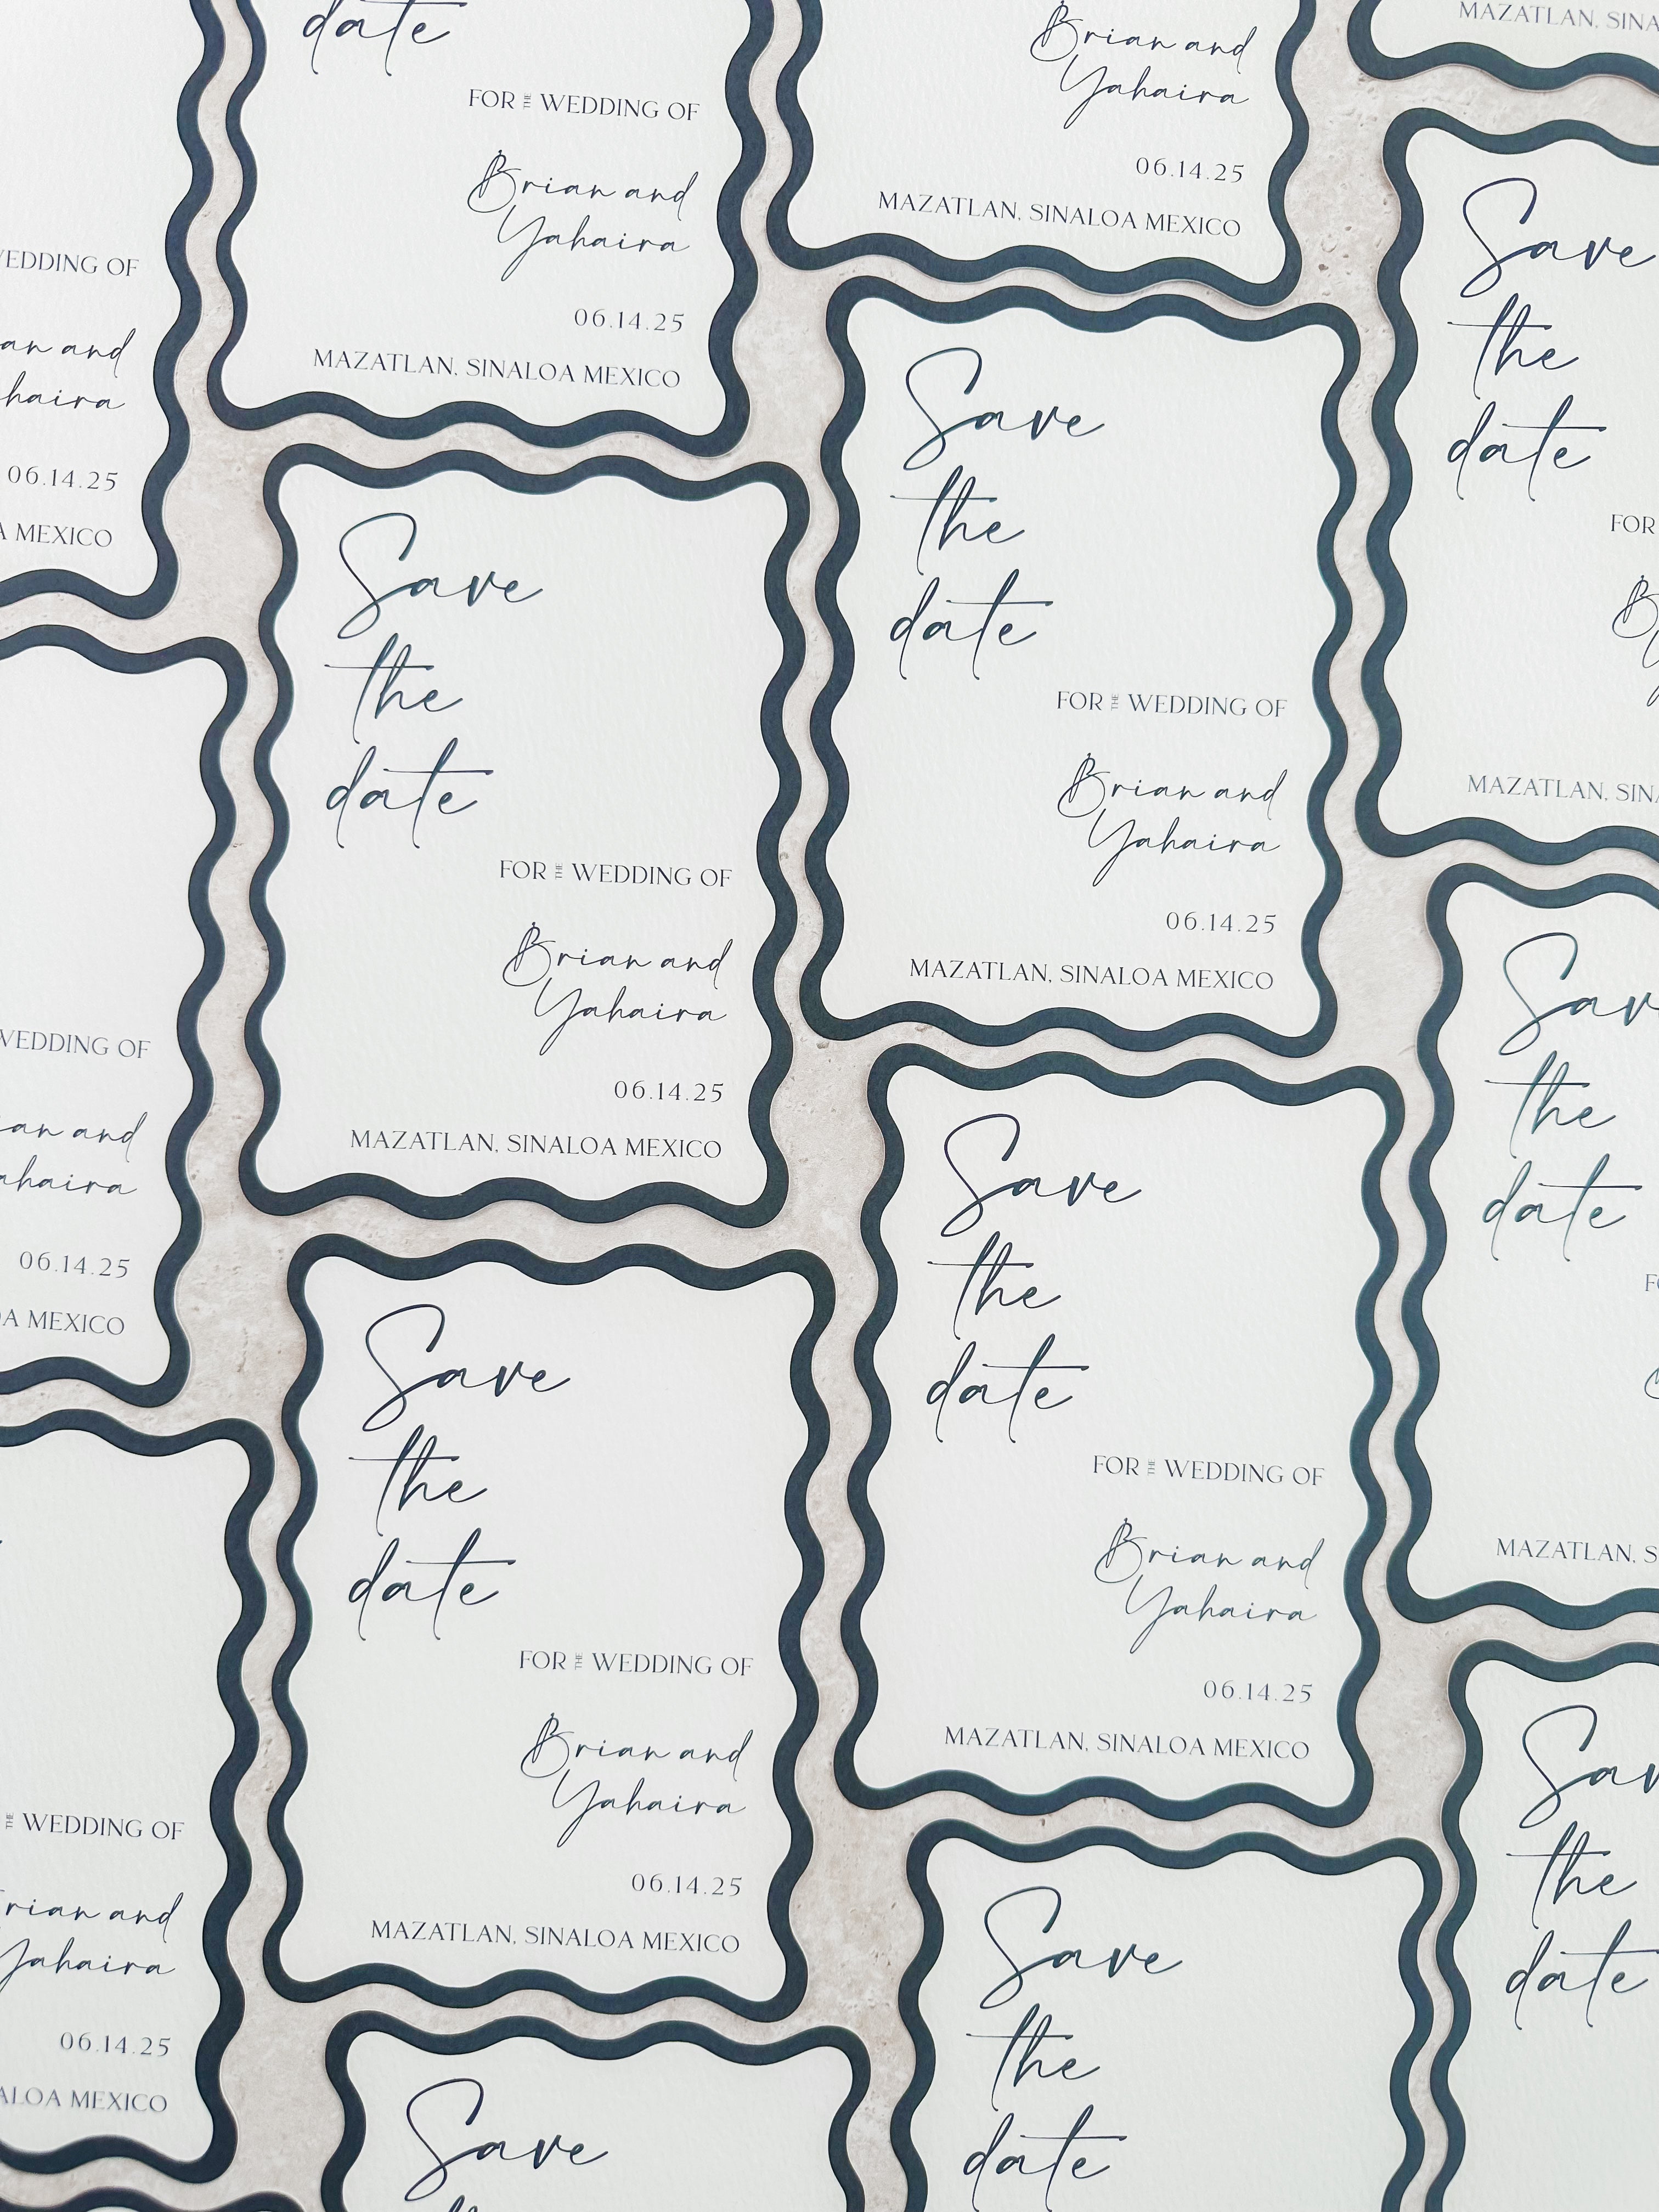 EDDING OF
an and
haira
06.14.25
A MEXICO
WEDDING OF
an and
ahaira
06.14.25
OA MEXICO
THE WEDDING OF
rian and
Yahaira
06.14.25
ALOA MEXICO
date
FOR THE WEDDING OF
Brian and
Yahaira
06.14.25
MAZATLAN, SINALOA MEXICO
Save
the
date
FOR THE WEDDING OF
Brian and
Yahaira
06.14.25
MAZATLAN, SINALOA MEXICO
Save
the
date
FOR THE WEDDING OF
Brian and
Yahaira
06.14.25
MAZATLAN, SINALOA MEXICO
Save
Brian and
Yahaira
06.14.25
MAZATLAN, SINALOA MEXICO
Save
the
date
FOR THE WEDDING OF
Brian and
Yahaira
06.14.25
MAZATLAN, SINALOA MEXICO
Save
the
date
FOR THE WEDDING OF
Brian and
Yahaira
06.14.25
MAZATLAN, SINALOA MEXICO
Save
the
date
MAZATLAN, SINA
Save
the
date
FOR
MAZATLAN, SINA
Sav
the
date
MAZATLAN, S
Sav
the
date